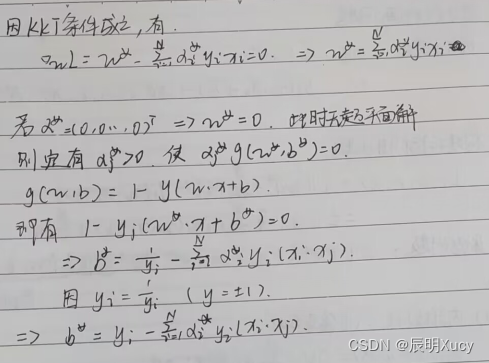 因KKT条件成立,有.
∇wL = w* - Σ_{i=1}^{N} αi* yi xi = 0. ⇒ w* = Σ_{i=1}^{N} αi* yi xi
若 α* = (0,0...,0)^T ⇒ w* = 0. 此时无超平面解
则定有 αj* > 0. 使 αj* g(w*,b*) = 0.
g(w,b) = 1 - y(w·x+b).
即有 1 - yj(w*·x + b*) = 0.
⇒ b* = 1/yj - Σ_{i=1}^{N} αi* yi (xi·xj).
因 yi = 1/yi (y = ±1).
⇒ b* = yj - Σ_{i=1}^{N} αi* yi (xi·xj).
CSDN @辰明Xucy